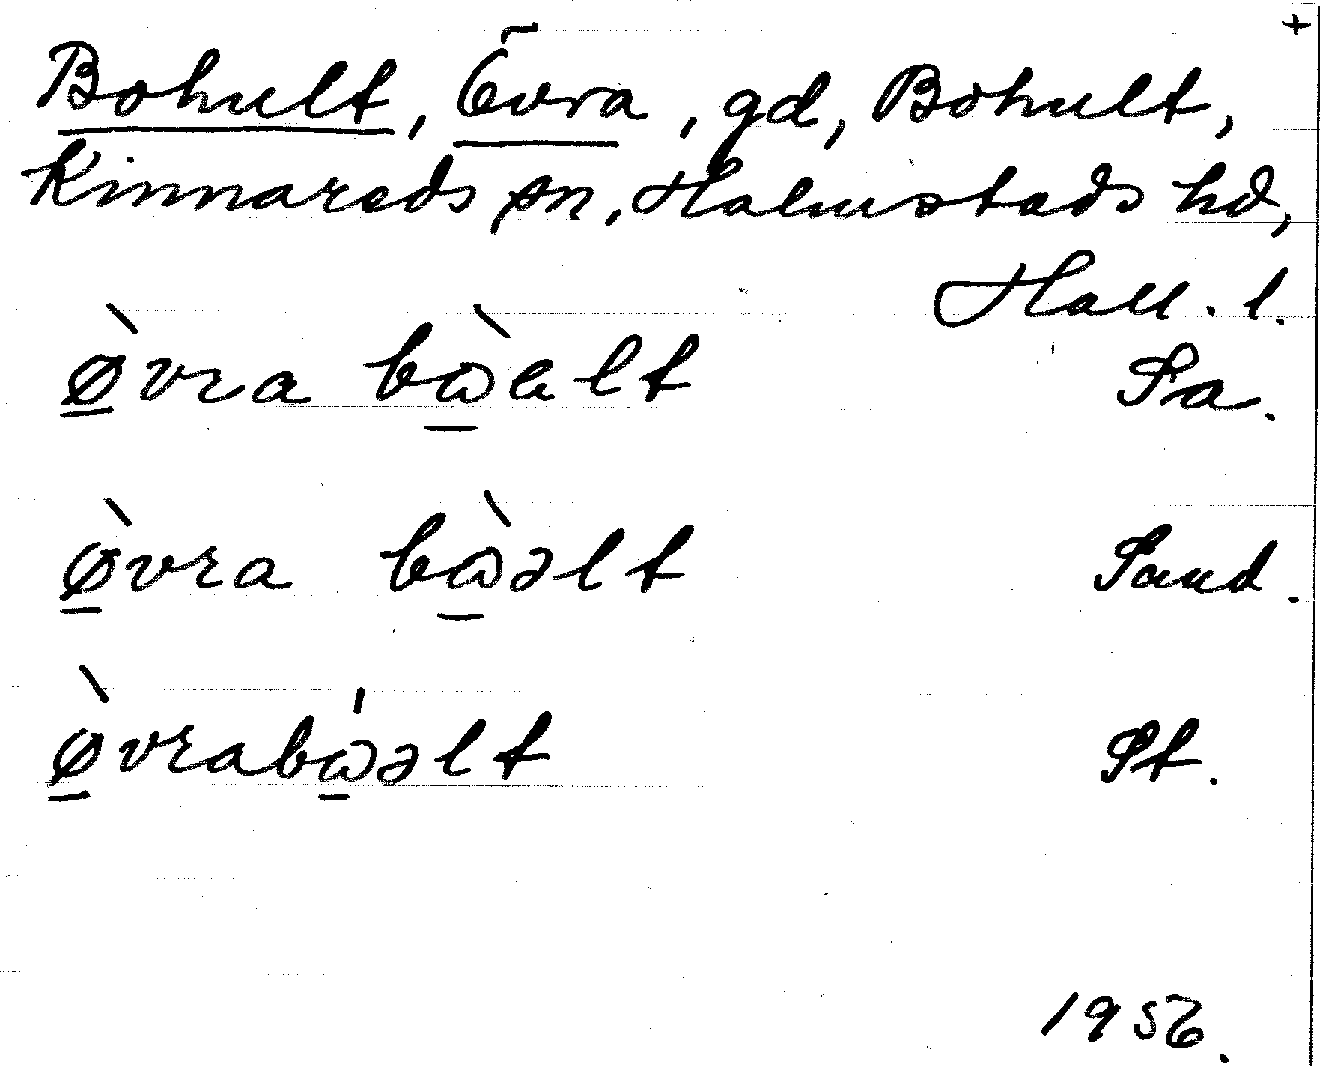 +
Bohult, Övra, gd, Bohult,
Kinnareds sn, Halmstads hd,
Hall. l.
ø̀vra bɷ̀ɐlt Sa.
ø̀vra bɷ̀əlt Sand.
ø̀vrabɷ̍əlt St.
1956.